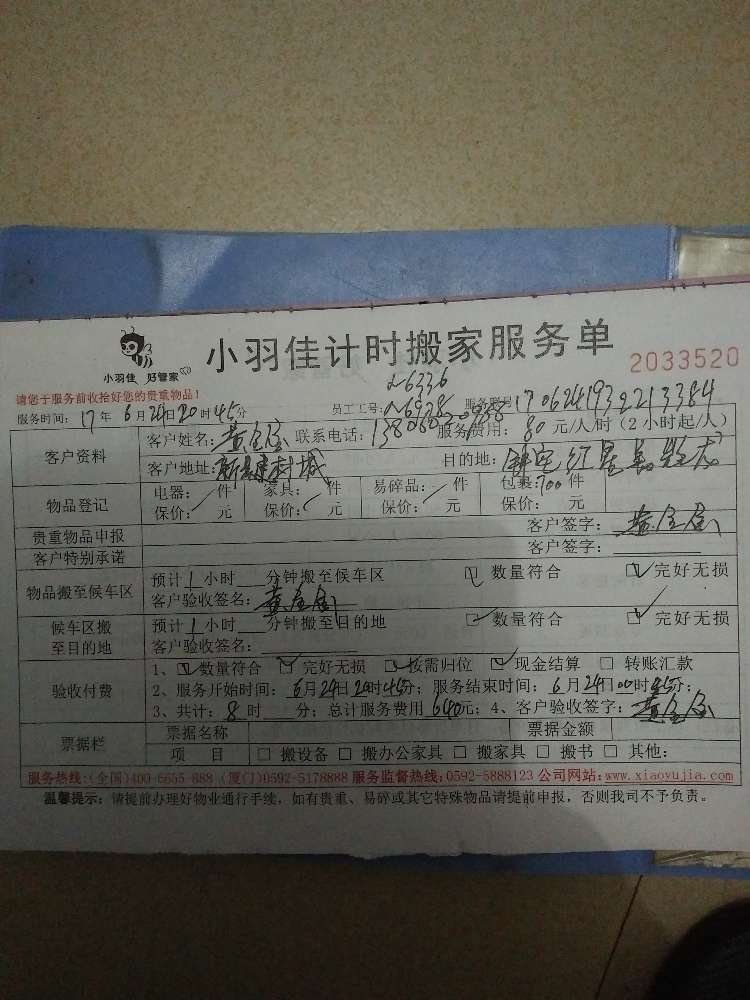 小羽佳计时搬家服务单
小羽佳 好管家
2033520
请您于服务前收拾好您的贵重物品!
服务时间: 17年6月24日20时45分 员工工号: 服务单号:
客户资料 客户姓名: 联系电话: 服务费用: 80元/人/时(2小时起/人)
客户地址: 目的地:
物品登记 电器: 件 家具: 件 易碎品: 件 包裹: 件
保价: 元 保价: 元 保价: 元 保价: 元
贵重物品申报 客户签字:
客户特别承诺 客户签字:
物品搬至候车区 预计1小时 分钟搬至候车区 ☑数量符合 ☑完好无损
客户验收签名:
候车区搬至目的地 预计1小时 分钟搬至目的地 ☑数量符合 ☑完好无损
客户验收签名:
验收付费 1、☑数量符合 ☑完好无损 ☑按需归位 ☑现金结算 □转账汇款
2、服务开始时间: 6月24日20时45分; 服务结束时间: 6月24日00时45分;
3、共计: 8时 分; 总计服务费用640元; 4、客户验收签字:
票据栏 票据名称 票据金额
项目 □搬设备 □搬办公家具 □搬家具 □搬书 □其他:
服务热线:(全国)400-6655-888 (厦门)0592-5178888 服务监督热线:0592-5888123 公司网站:www.xiaoyujia.com
温馨提示: 请提前办理好物业通行手续, 如有贵重、易碎或其它特殊物品请提前申报, 否则我司不予负责。